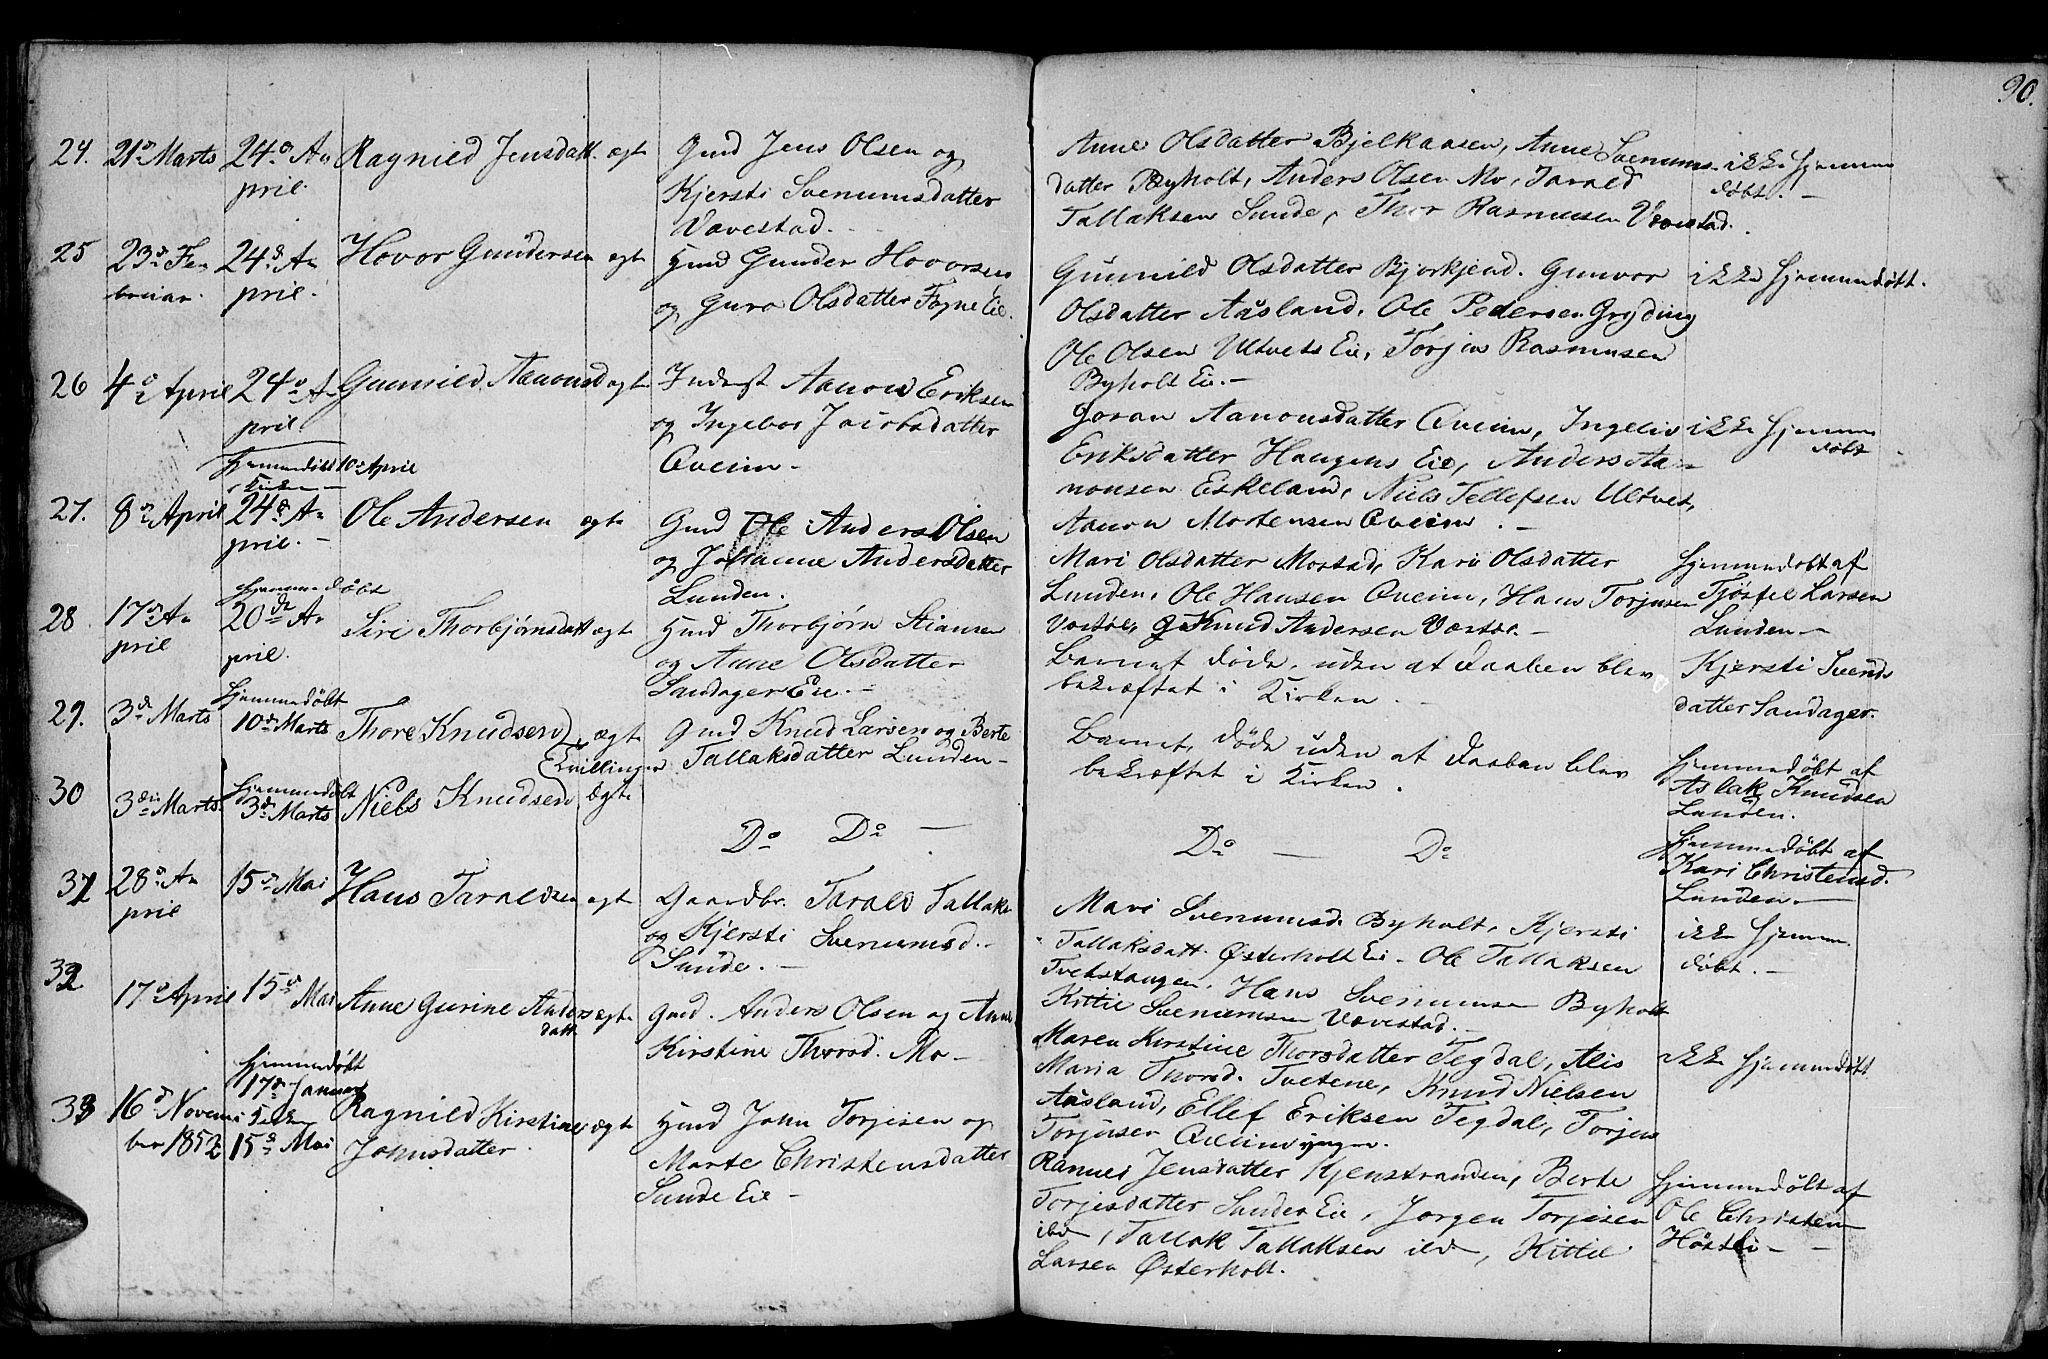 90.
24. 21de Marts 24de A- Ragnild Jensdatt. ægte Gmd Jens Olsen og
pril. Kjersti Svenumsdatter
Vævestad.
Anne Olsdatter Bjelkaasen, Anne Svenums-
datter Byholt, Anders Olsen Mo, Tarald
Tallaksen Sunde, Thor Rasmusen Vævestad.
ikke hjemme
døbt. -
25 23de Fe- 24de A- Hovor Gundersen ægte Hmd Gunder Hovorsen
bruar. pril. og Guro Olsdatter Fogne Eie.
Gunnild Olsdatter Bjorkjend. Gunvor
Olsdatter Aasland, Ole Pedersen Gryding
Ole Olsen Ultvets Eie, Torjus Rasmusen
Byholt Eie. -
ikke hjemmedøbt.
26 4de April 24de A- Gunnild Aanonsd ægte Inderst Aanon Eriksen
pril. og Ingebor Jacobsdatter
Qveim -
Goran Aanonsdatter Qveim, Ingeliv
Eriksdatter Haugens Eie, Anders Aa-
nonsen Eskeland, Niels Tellefsen Ultvet,
Aanon Mortensen Qveim. -
ikke hjemme
døbt
hjemmedøbt 10de April
27. 8de April 24de A- Ole Andersen ægte Gmd Ole Anders Olsen
pril. - og Johanne Andersdatter
Lunden.
Mari Olsdatter Mostad, Kari Olsdatter
Lunden, Ole Hansen Qveim, Hans Torjusen
Vastøl, Knud Andersen Vastøl. -
hjemmedøbt af
Tjøstel Larsen
Lunden -
hjemmedøbt
28 17de A- 20de A- Siri Thorbjørnsdatt ægte Hmd Thorbjørn Stiansen
pril pril. og Anne Olsdatter
Sandager Eie. -
Barnet døde, uden at Daaben blev
bekræftet i Kirken.
Kjersti Svends
datter Sandager.
hjemmedøbt
29. 3de Marts 10de Marts Thore Knudsen) ægte Gmd Knud Larsen og Berte
(Tvillinger Tallaksdatter Lunden -
Barnet, døde uden at Daaben blev
bekræftet i Kirken.
hjemmedøbt af
Aslak Knudsen
Lunden.
hjemmedøbt
30 3die Marts 3de Marts Niels Knudsen ægte
Do Do -
Do - Do
hjemmedøbt af
Kari Christensd.
Lunden. -
31 28de A- 15de Mai Hans Taraldsen ægte Gaardbr. Tarald Tallaks
pril og Kjersti Svenumsd. -
Sunde. -
Mari Svenumsd. Byholt, Kjersti
Tallaksdatt. Østerholt Ei - Ole Tallaksen
Tvedstangen, Hans Svenumsen Byholt
Kittil Svenumsen Vævestad. -
ikke hjemme
døbt. -
32 17de April 15de Mai Anne Gurine Anders ægte Gmd. Anders Olsen og Anne
datt Kirstine Thorsd. Mo -
Maren Kirstine Thorsdatter Tegdal, Alis
Maria Thorsd. Tvetene, Knud Nielsen
Aasland, Ellef Eriksen Tegdal, Torjus
Torjusen Qveim yngre.
ikke hjemmedøbt
hjemmedøbt
17de Januar
33 16de Novem- Ragnild Kirstine ægte Hmd John Torjesen og
ber 1852 15de Mai Johnsdatter. Marte Christensdatter
Sunde Eie -
Jensdatter Kjenstranden, Berte
Torjesdatter Sunde Eie, Jørgen Torjesen
ibd, Tallak Tallaksen ibd, Kittil
Larsen Østerholt.
hjemmedøbt af
Ole Christen